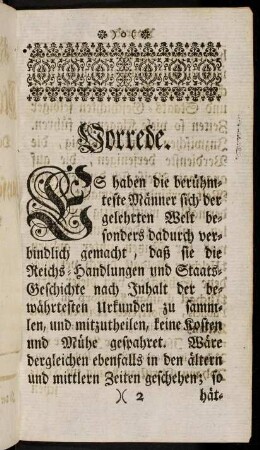 )o(
Vorrede.
ES haben die berühm-
teste Männer sich der
gelehrten Welt be-
sonders dadurch ver-
bindlich gemacht, daß sie die
Reichs-Handlungen und Staats-
Geschichte nach Inhalt der be-
währtesten Urkunden zu samm-
len, und mitzutheilen, keine Kosten
und Mühe gespahret. Wäre
dergleichen ebenfalls in den ältern
und mittlern Zeiten geschehen; so
)( 2 hät-